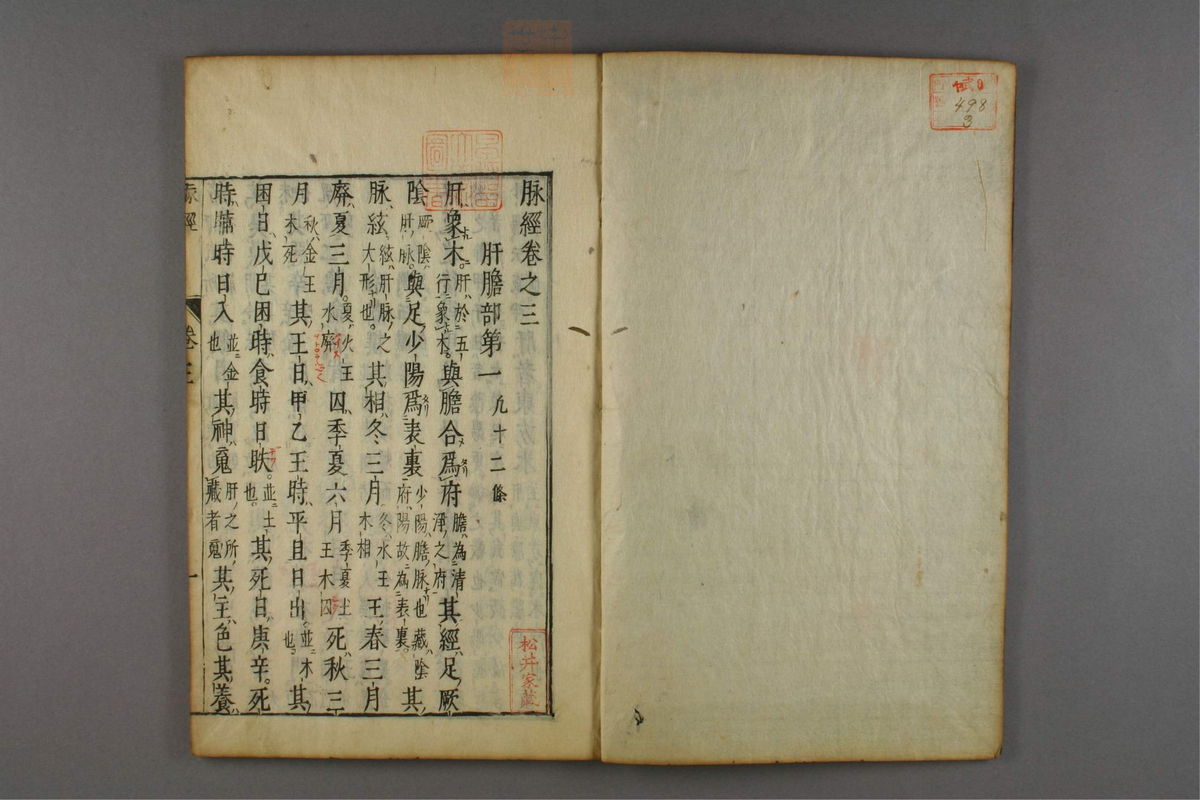 498
3
脉經卷之三
肝膽部第一 九十二條
肝象木肝於五行象木與膽合爲府膽為清淨之府其經足厥
陰厥陰肝脉與足少陽爲表裏少陽膽脉也藏陰府陽故為表裏其
脉絃絃肝脉之大形也其相冬三月冬水王木相王春三月
廢夏三月夏火王木廢囚季夏六月季夏土王木囚死秋三
月秋金王木死其王日甲乙王時平旦日出並木也其
困日戊己困時食時日昳並土也其死日庚辛死
時晡時日入並金也其神䰟肝之所藏者䰟其主色其養
脉經
卷三
一
松井家藏